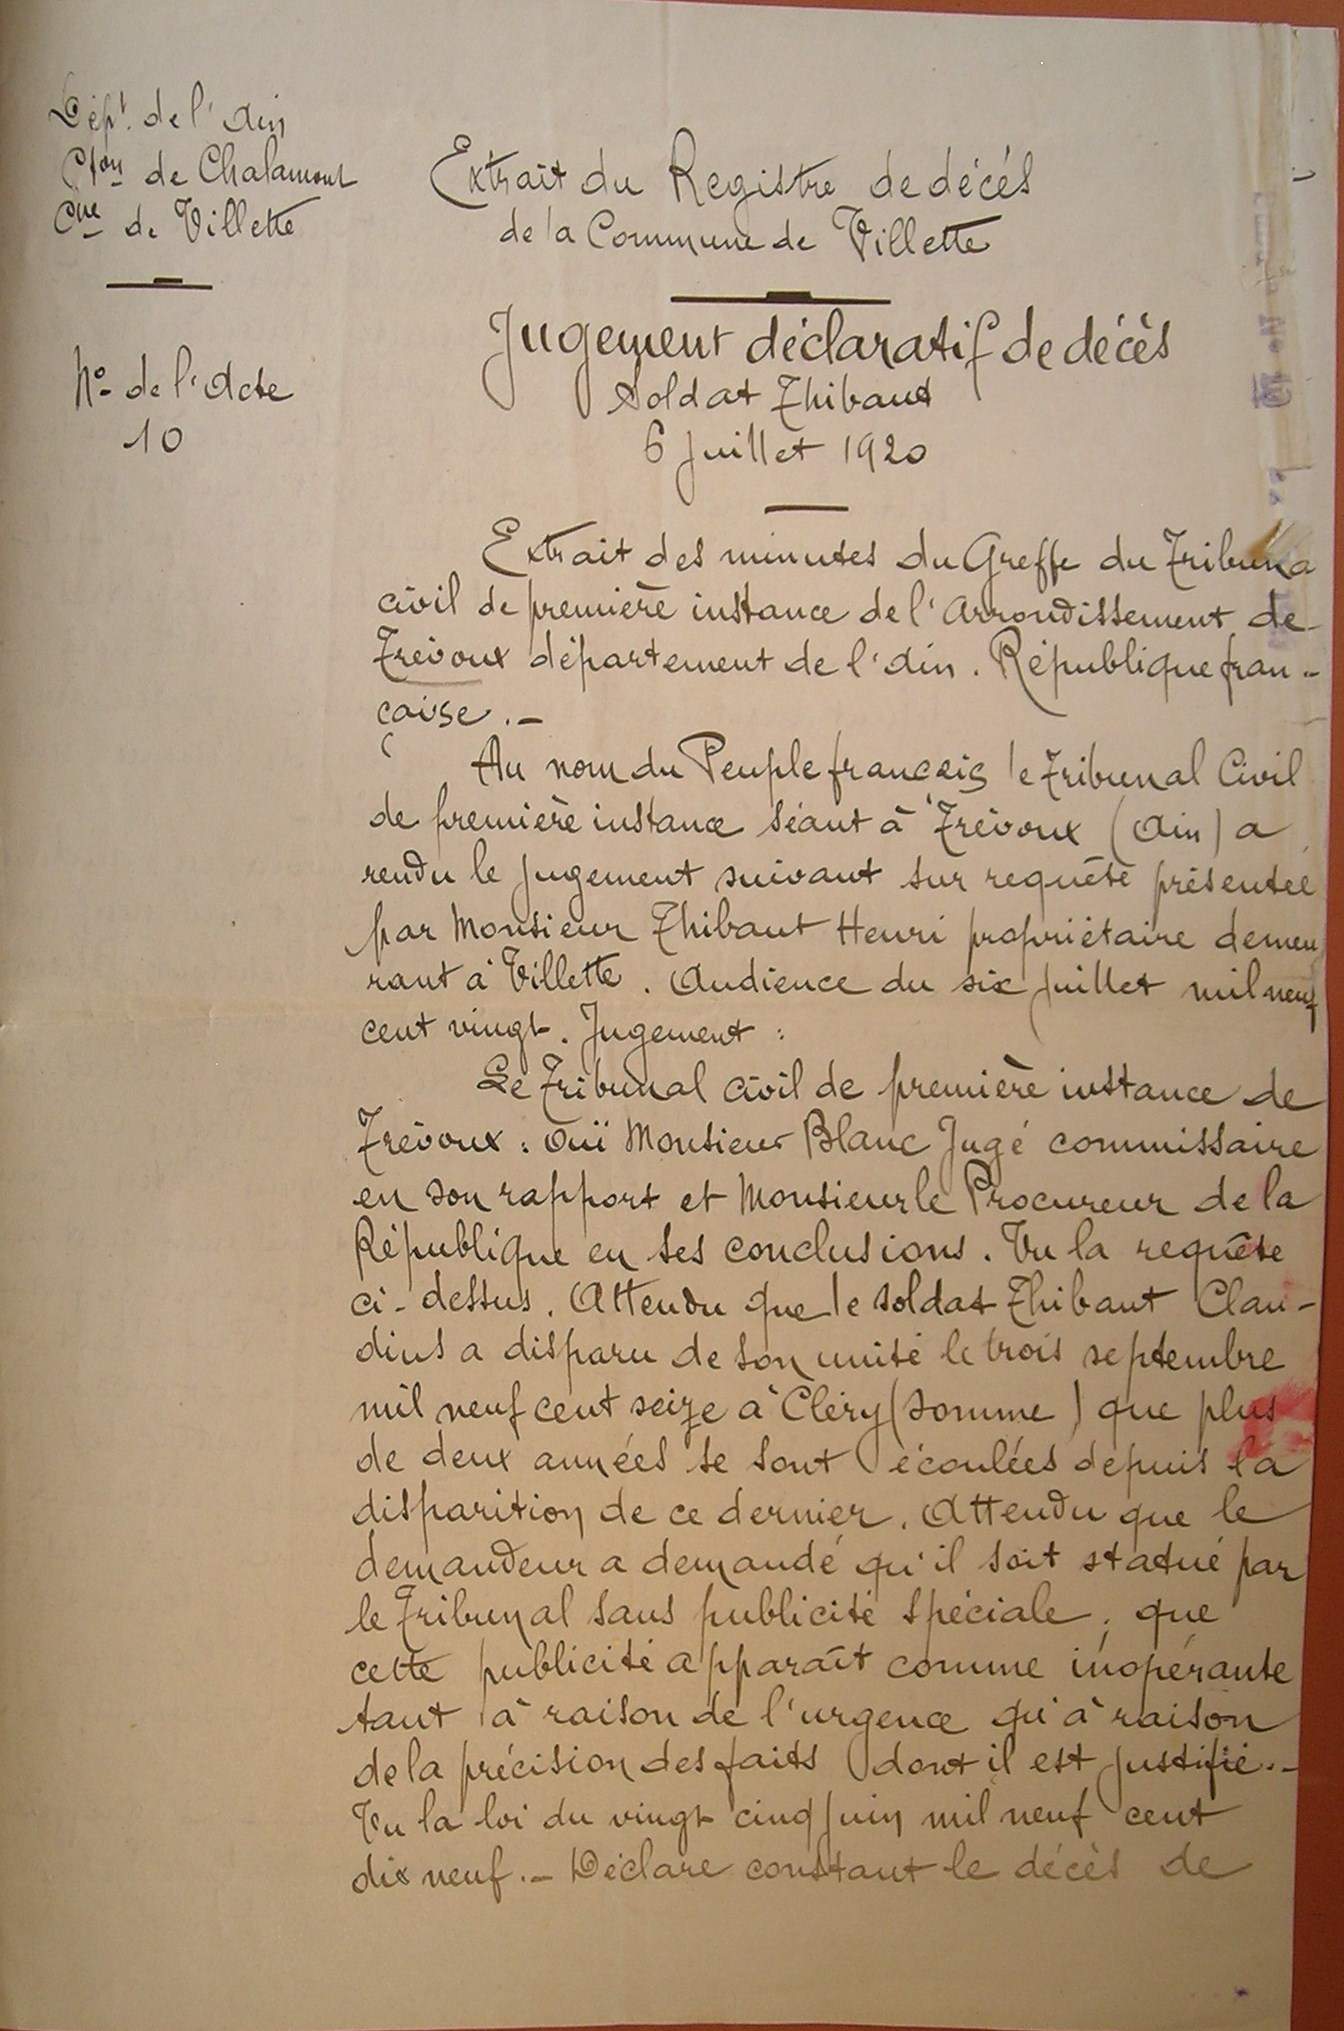 Dépt. de l'Ain
Cton de Chalamont
Cne de Villette
N° de l'Acte
10
Extrait du Registre de décés
de la Commune de Villette
Jugement déclaratif de décès
Soldat Thibaut
6 Juillet 1920
Extrait des minutes du Greffe du Tribuna
civil de première instance de l'Arrondissement de
Trévoux département de l'Ain. République fran-
çaise.-
Au nom du Peuple français le Tribunal Civil
de première instance séant à Trévoux (Ain) a
rendu le Jugement suivant sur requête présentée
par Monsieur Thibaut Henri propriétaire demeu
rant à Villette. Audience du six Juillet mil neuf
cent vingt. Jugement :
Le Tribunal civil de première instance de
Trévoux : Ouï Monsieur Blanc Jugé commissaire
en son rapport et Monsieur le Procureur de la
République en ses conclusions. Vu la requête
ci-dessus. Attendu que le soldat Thibaut Clau-
dius a disparu de son unité le trois septembre
mil neuf cent seize à Cléry (Somme) que plus
de deux années se sont écoulées depuis la
disparition de ce dernier. Attendu que le
demandeur a demandé qu'il soit statué par
le Tribunal sans publicité spéciale, que
cette publicité apparaît comme inopérante
tant à raison de l'urgence qu'à raison
de la précision des faits dont il est justifié.-
Vu la loi du vingt cinq Juin mil neuf cent
dix neuf.- Déclare constant le décès de